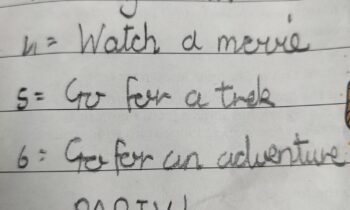 4= Watch a movie
5= Go for a trek
6= Go for an adventure
PARTY!